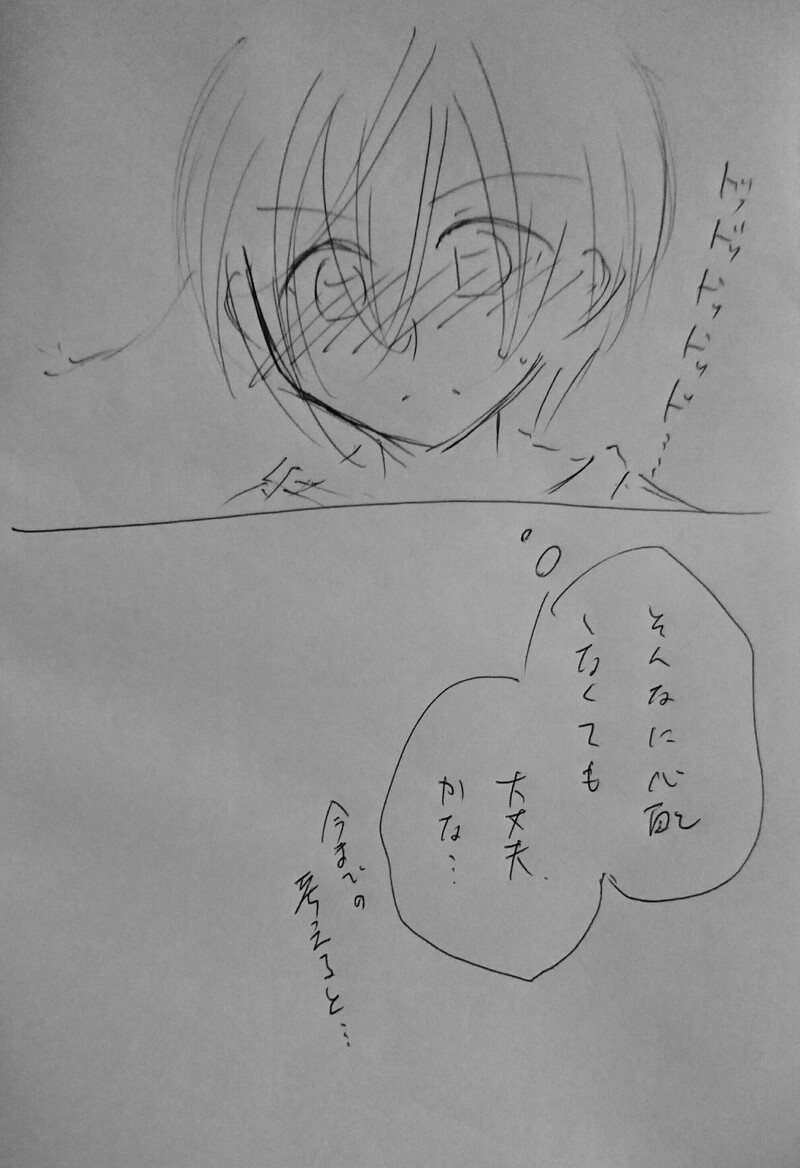 ドッドッドッドッドッ…
そんなに心配
しなくても
大丈夫
かな…
今までの
考えると…